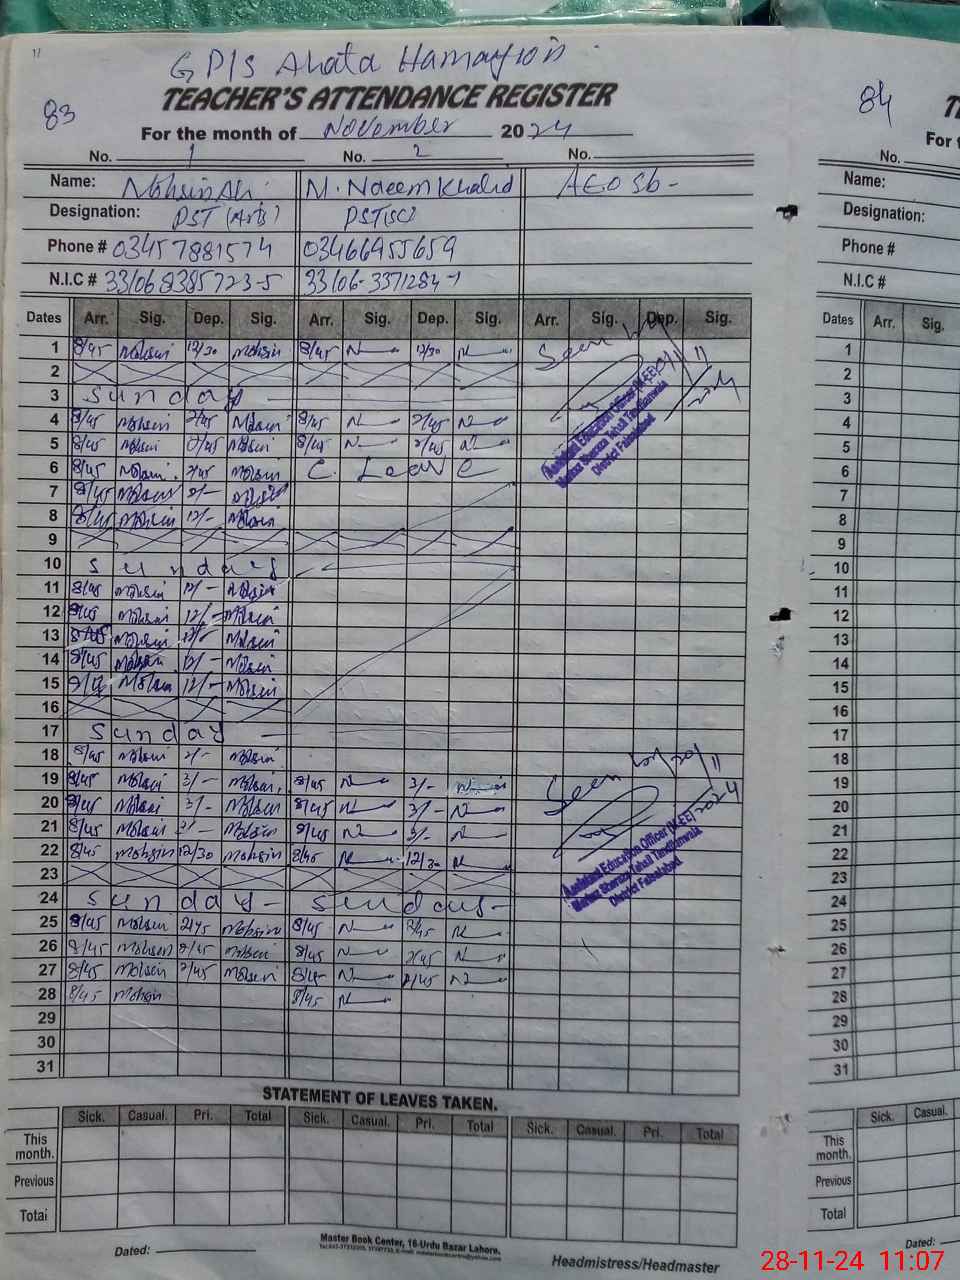 11
G P/S Ahata Hamayion
TEACHER'S ATTENDANCE REGISTER
83
For the month of November 2024
No. 1 No. 2 No.
Name: Mohsin Ali. M. Naeem Khalid AEO Sb-
Designation: PST (Arts) PST(SC)
Phone # 03457881574 03466955659
N.I.C # 33106 8385723-5 33106-3371284-1
Dates Arr. Sig. Dep. Sig. Arr. Sig. Dep. Sig. Arr. Sig. Dep. Sig.
1 8/45 Mohsin 12/30 Mohsin 8/45 N 12/30 N
2
3 Sunday -
4 8/45 Mohsin 2/45 Mohsin 8/45 N 2/45 N
5 8/45 Mohsin 2/45 Mohsin 8/45 N 2/45 N
6 8/45 Mohsin 2/45 Mohsin C Leave
7 8/45 Mohsin 2/- Mohsin
8 8/45 Mohsin 12/- Mohsin
9
10 Sunday
11 8/45 Mohsin 12/- Mohsin
12 8/45 Mohsin 12/- Mohsin
13 8/45 Mohsin 12/- Mohsin
14 8/45 Mohsin 12/- Mohsin
15 Mohsin 12/- Mohsin
16
17 Sunday -
18 8/45 Mohsin 2/- Mohsin
19 8/45 Mohsin 3/- Mohsin 8/45 N 3/- N
20 8/45 Mohsin 3/- Mohsin 8/45 N 3/- N
21 8/45 Mohsin 3/- Mohsin 8/45 N 3/- N
22 8/45 Mohsin 12/30 Mohsin 8/45 N 12/30 N
23
24 Sunday - Sunday -
25 8/45 Mohsin 2/45 Mohsin 8/45 N 2/45 N
26 8/45 Mohsin 2/45 Mohsin 8/45 N 2/45 N
27 8/45 Mohsin 2/45 Mohsin 8/45 N 2/45 N
28 8/45 Mohsin 8/45 N
29
30
31
Seen
11
2024
Assistant Education Officer (M-EE)
Tehsil Tandlianwala
District Faisalabad
Seen 20/11
2024
Assistant Education Officer (M-EE)
Tehsil Tandlianwala
District Faisalabad
STATEMENT OF LEAVES TAKEN.
Sick. Casual. Pri. Total Sick. Casual. Pri. Total Sick. Casual. Pri. Total
This month.
Previous
Total
Master Book Center, 16-Urdu Bazar Lahore.
Dated: Headmistress/Headmaster
84
For
No.
Name:
Designation:
Phone #
N.I.C #
Dates Arr. Sig.
1
2
3
4
5
6
7
8
9
10
11
12
13
14
15
16
17
18
19
20
21
22
23
24
25
26
27
28
29
30
31
Sick. Casual.
This month.
Previous
Total
Dated:
28-11-24 11:07